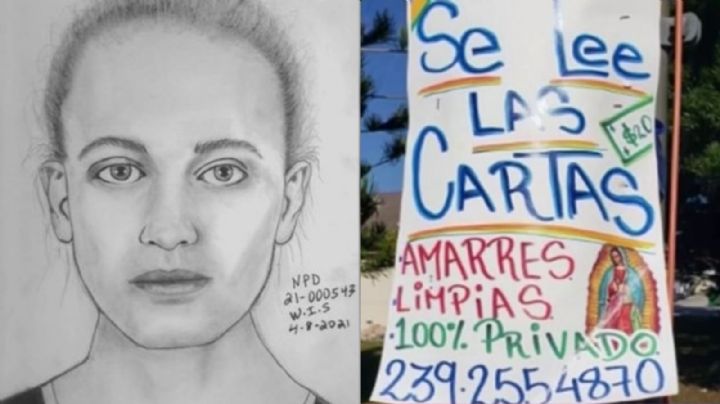 NPD
21-000543
W.I.S
4-8-2021
Se Lee
LAS
$20
CARTAS
·AMARRES
·LIMPIAS.
·100% PRIVADO.
239.2554870